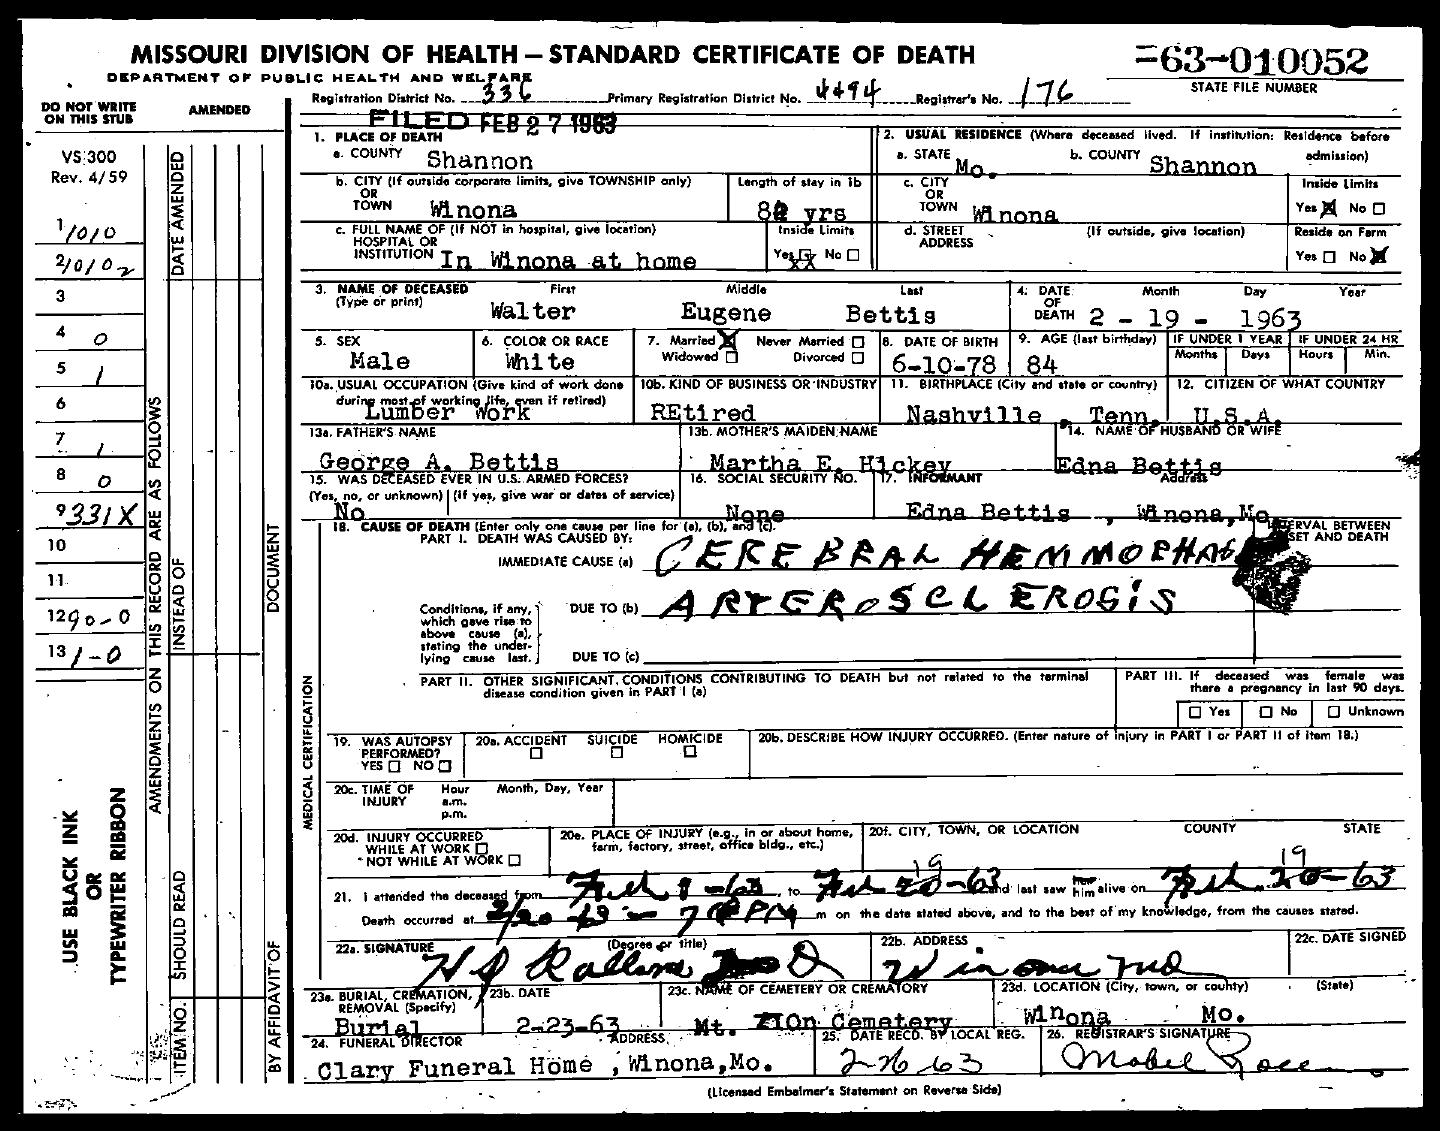 MISSOURI DIVISION OF HEALTH — STANDARD CERTIFICATE OF DEATH
-63-010052
STATE FILE NUMBER
DEPARTMENT OF PUBLIC HEALTH AND WELFARE
Registration District No. 336 Primary Registration District No. 4494 Registrar's No. 176
DO NOT WRITE ON THIS STUB
AMENDED
FILED FEB 27 1963
VS 300
Rev. 4/59
1 1010
2 10102
3
4 0
5 1
6
7 1
8 0
9 331X
10
11
12 90-0
13 1-0
USE BLACK INK
OR
TYPEWRITER RIBBON
AMENDMENTS ON THIS RECORD ARE AS FOLLOWS
DATE AMENDED
INSTEAD OF
SHOULD READ
ITEM NO.
DOCUMENT
BY AFFIDAVIT OF
1. PLACE OF DEATH
a. COUNTY Shannon
2. USUAL RESIDENCE (Where deceased lived. If institution: Residence before admission)
a. STATE Mo. b. COUNTY Shannon
b. CITY (If outside corporate limits, give TOWNSHIP only) OR TOWN Winona
Length of stay in 1b
yrs
c. CITY OR TOWN Winona
Inside Limits
Yes X No
c. FULL NAME OF (If NOT in hospital, give location) HOSPITAL OR INSTITUTION In Winona at home
Inside Limits
Yes XX No
d. STREET ADDRESS (If outside, give location)
Reside on Farm
Yes No X
3. NAME OF DECEASED (Type or print) First Middle Last
Walter Eugene Bettis
4. DATE OF DEATH Month Day Year
2 - 19 - 1963
5. SEX
Male
6. COLOR OR RACE
White
7. Married X Never Married
Widowed Divorced
8. DATE OF BIRTH
6-10-78
9. AGE (last birthday)
84
IF UNDER 1 YEAR
Months Days
IF UNDER 24 HR
Hours Min.
10a. USUAL OCCUPATION (Give kind of work done during most of working life, even if retired)
Lumber Work
10b. KIND OF BUSINESS OR INDUSTRY
REtired
11. BIRTHPLACE (City and state or country)
Nashville , Tenn.
12. CITIZEN OF WHAT COUNTRY
U.S.A.
13a. FATHER'S NAME
George A. Bettis
13b. MOTHER'S MAIDEN NAME
Martha E. Hickey
14. NAME OF HUSBAND OR WIFE
Edna Bettis
15. WAS DECEASED EVER IN U.S. ARMED FORCES?
(Yes, no, or unknown) (If yes, give war or dates of service)
No
16. SOCIAL SECURITY NO.
None
17. INFORMANT Address
Edna Bettis , Winona, Mo.
18. CAUSE OF DEATH (Enter only one cause per line for (a), (b), and (c).
PART I. DEATH WAS CAUSED BY:
ERVAL BETWEEN
SET AND DEATH
IMMEDIATE CAUSE (a) CEREBRAL HEMMORHAG
Conditions, if any, which gave rise to above cause (a), stating the underlying cause last.
DUE TO (b) ARTEROSCLEROSIS
DUE TO (c)
PART II. OTHER SIGNIFICANT CONDITIONS CONTRIBUTING TO DEATH but not related to the terminal disease condition given in PART I (a)
PART III. If deceased was female was there a pregnancy in last 90 days.
Yes No Unknown
MEDICAL CERTIFICATION
19. WAS AUTOPSY PERFORMED?
YES NO
20a. ACCIDENT SUICIDE HOMICIDE
20b. DESCRIBE HOW INJURY OCCURRED. (Enter nature of injury in PART I or PART II of item 18.)
20c. TIME OF INJURY Hour a.m. p.m. Month, Day, Year
20d. INJURY OCCURRED
WHILE AT WORK
NOT WHILE AT WORK
20e. PLACE OF INJURY (e.g., in or about home, farm, factory, street, office bldg., etc.)
20f. CITY, TOWN, OR LOCATION COUNTY STATE
19 19
21. I attended the deceased from Feb 9-63, to Feb 20-63 and last saw him alive on Feb. 20-63
Death occurred at 2/20-63 - 7 PM m on the date stated above, and to the best of my knowledge, from the causes stated.
22a. SIGNATURE (Degree or title)
22b. ADDRESS
Winona Mo
22c. DATE SIGNED
23a. BURIAL, CREMATION, REMOVAL (Specify)
Burial
23b. DATE
2-23-63
23c. NAME OF CEMETERY OR CREMATORY
Mt. ZION Cemetery
23d. LOCATION (City, town, or county) (State)
Winona Mo.
24. FUNERAL DIRECTOR ADDRESS
Clary Funeral Home , Winona, Mo.
25. DATE RECD. BY LOCAL REG.
2-26-63
26. REGISTRAR'S SIGNATURE
Mabel
(Licensed Embalmer's Statement on Reverse Side)